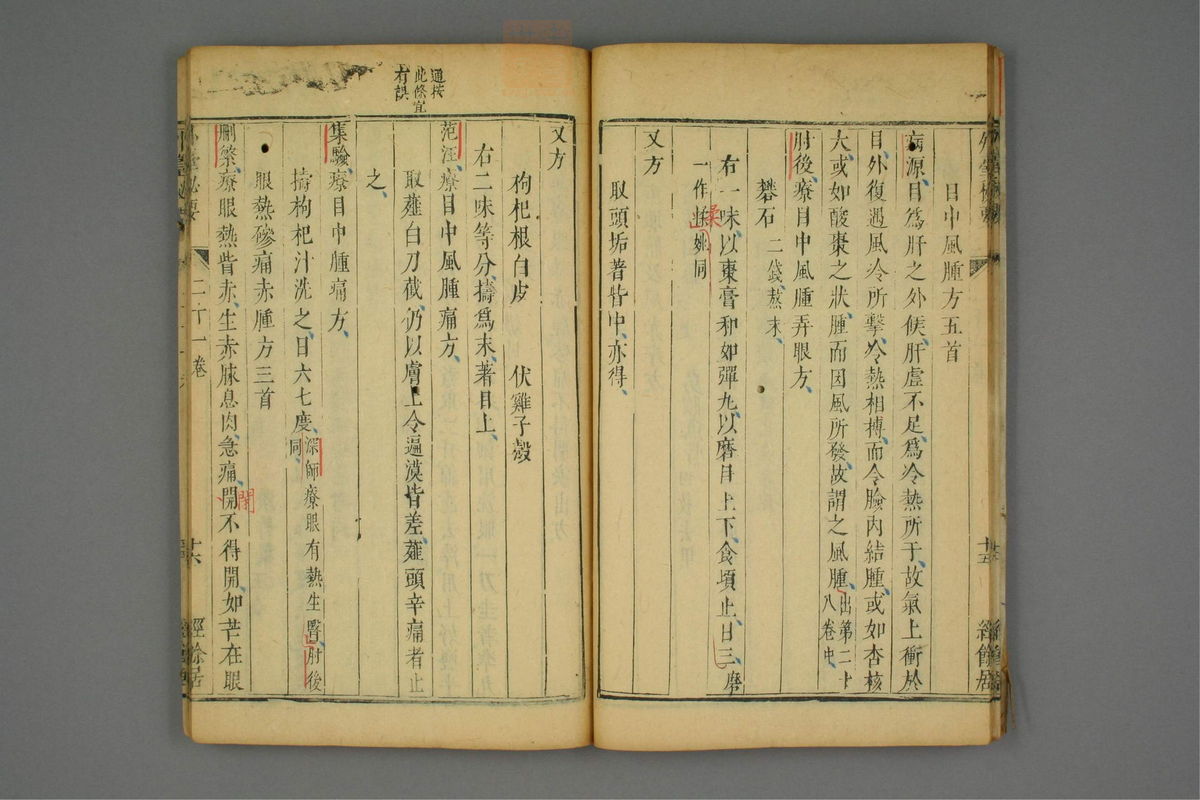 目中風腫方五首
病源、目爲肝之外候、肝虛不足、爲冷熱所干、故氣上衝於
目、外復遇風冷所擊、冷熱相搏、而令瞼內結腫、或如杏核
大、或如酸棗之狀、腫而因風所發、故謂之風腫、出第二十八卷中、
肘後、療目中風腫弄眼方、
礬石二錢、熬末、
右一味、以棗膏和如彈丸、以磨目上下、食頃止、日三、磨
一作
同
又方
取頭垢著眥中、亦得、
又方
枸杞根白皮 伏雞子殼
右二味等分、擣爲末、著目上、
范汪、療目中風腫痛方、
取薤白刀截、仍以膚上令遍漠皆差、薤頭辛痛者止
之、
通按此條宜有誤
集驗、療目中腫痛方、
擣枸杞汁洗之、日六七度、深師療眼有熱生瞖、肘後同、
眼熱磣痛赤腫方三首
刪繁、療眼熱眥赤、生赤脉息肉、急痛、開不得開、如芒在眼
閉
二十一卷
十六
經餘居
十五
經餘居